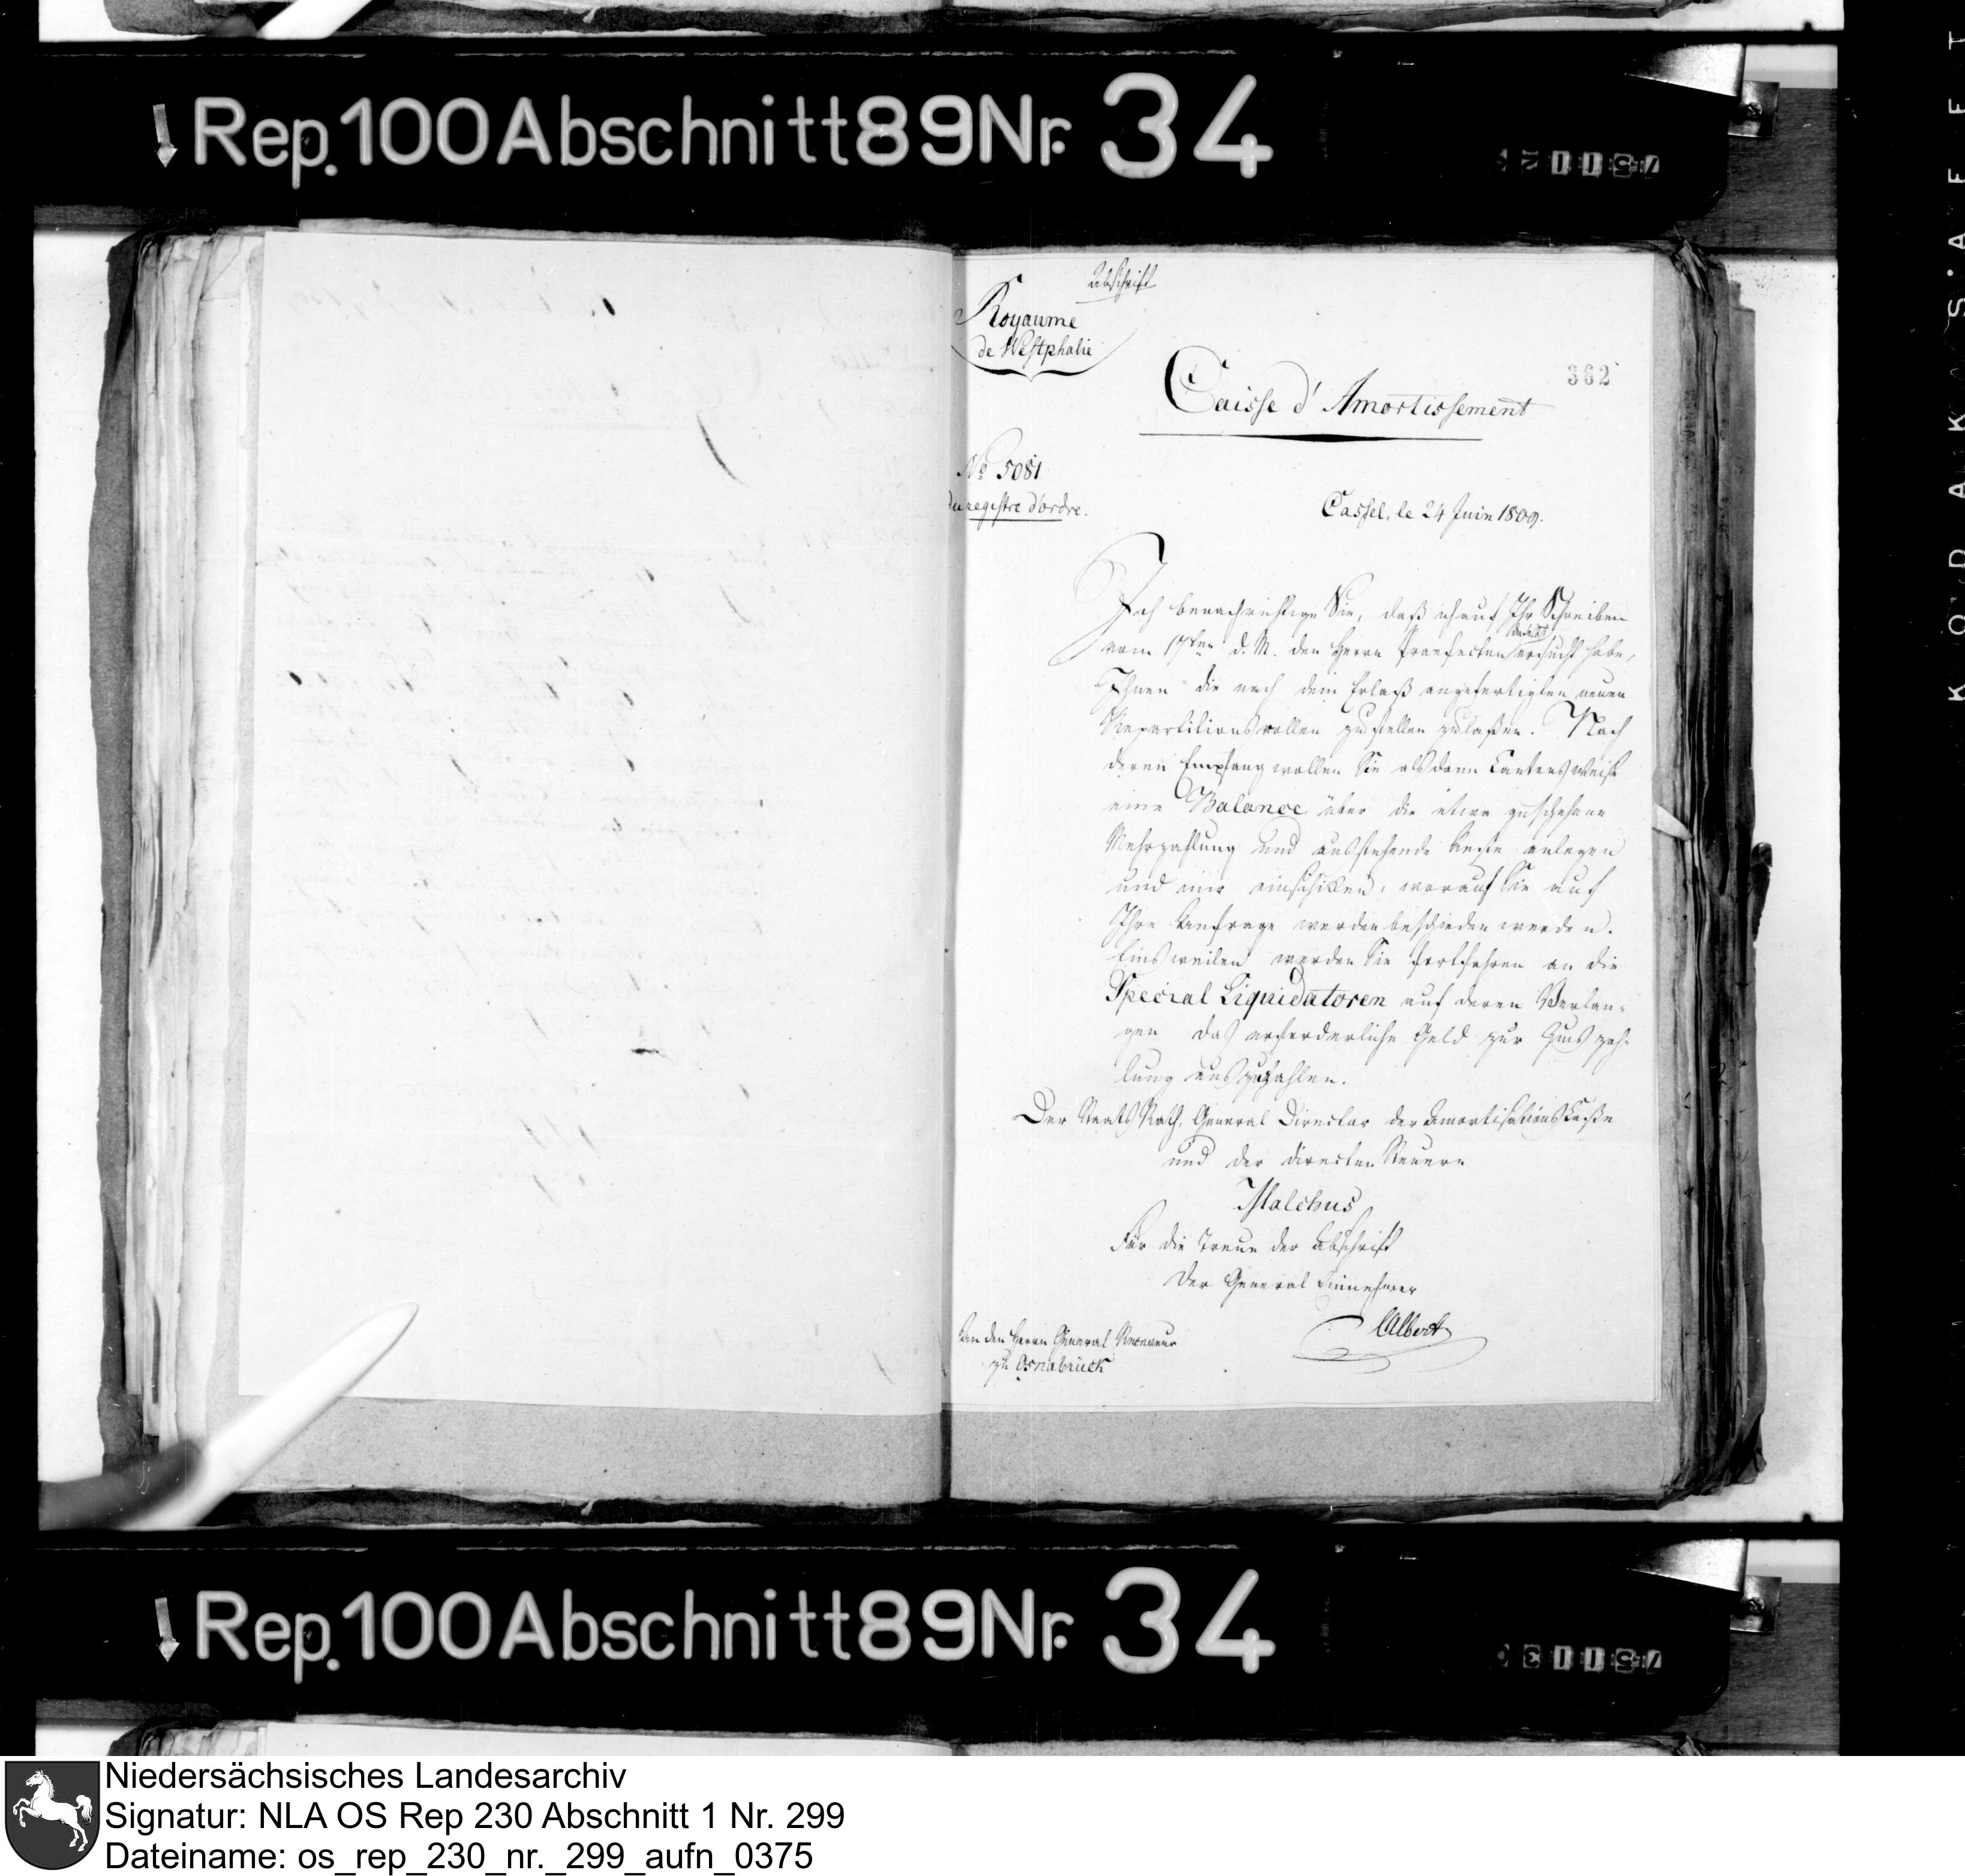 Rep. 100 Abschnitt 89 Nr. 34
Abschrift
Royaume
de Westphalie
362
Caisse d'Amortissement
No 5081
du registre d'ordre.
Cassel, le 24 Juin 1809.
Ich benachrichtige Sie, daß ich auf Ihr Schreiben
vom 17ten d. M. den Herrn Praefecten ersucht habe,
Ihnen die nach dem Erlaß angefertigten neuen
Repartitionsrollen zustellen zu laßen. Nach
deren Empfang wollen Sie alsdann Cantonsweise
eine Balance über die etwa geschehene
Mehrzahlung und ausstehende Reste anlegen
und mir einschicken, worauf Sie auf
Ihre Anfrage werden beschieden werden.
Einsweilen werden Sie fortfahren an die
Special Liquidatoren auf deren Verlan-
gen das erforderliche Geld zur Zinszah-
lung auszuzahlen.
Der Staats Rath, General Director der Amortisations Casse
und der directen Steuern
Malchus
Für die Treue der Abschrift
Der General Einnehmer
Albert
An den Herrn General Receveur
zu Osnabrück
Rep. 100 Abschnitt 89 Nr. 34
Niedersächsisches Landesarchiv
Signatur: NLA OS Rep 230 Abschnitt 1 Nr. 299
Dateiname: os_rep_230_nr._299_aufn_0375